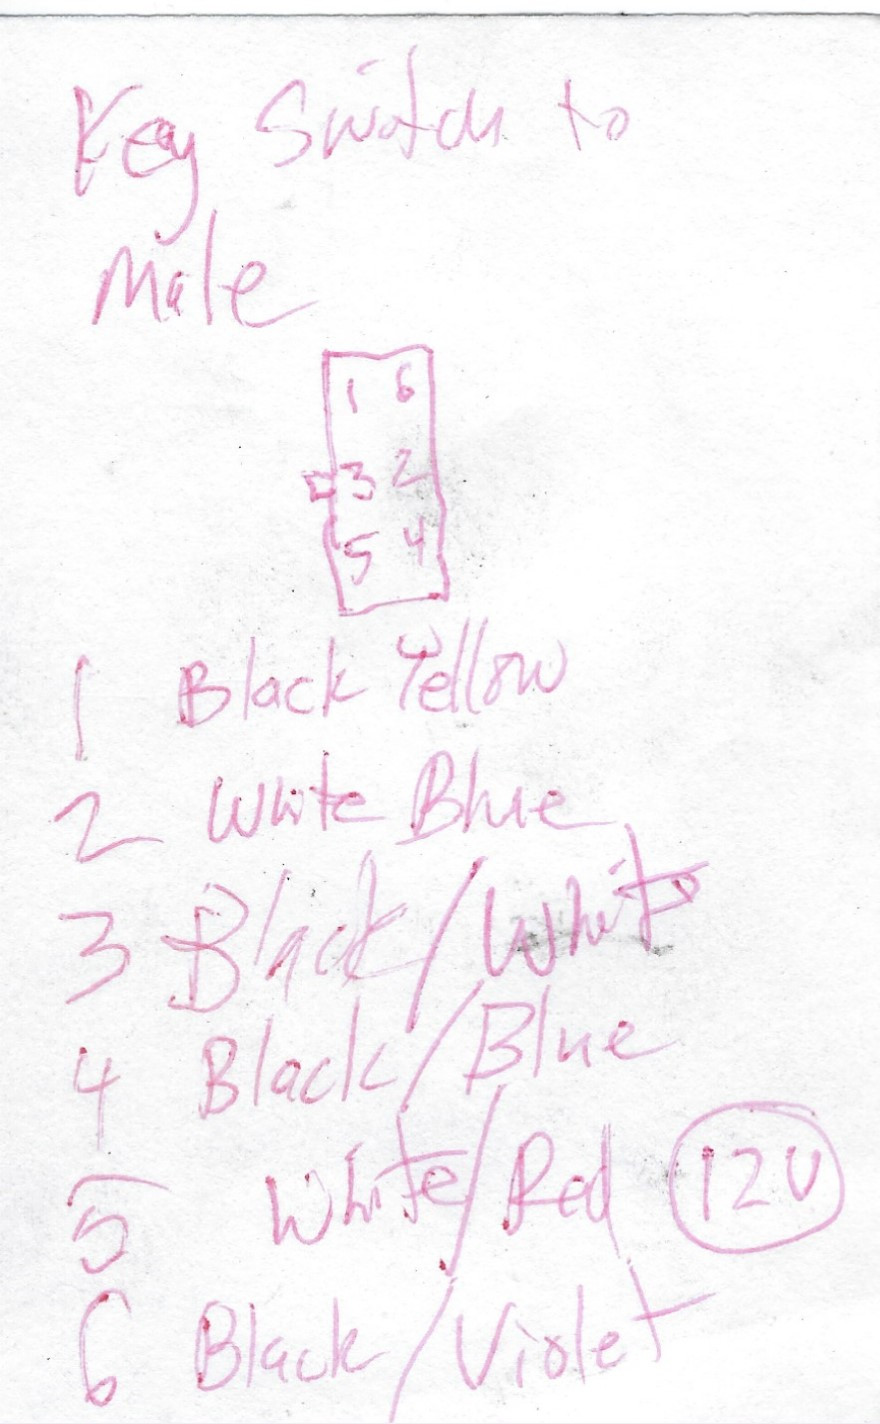 Key Switch to
Male
1 6
3 2
5 4
1 Black Yellow
2 White Blue
3 Black/White
4 Black/Blue
5 White/Red 12V
6 Black/Violet